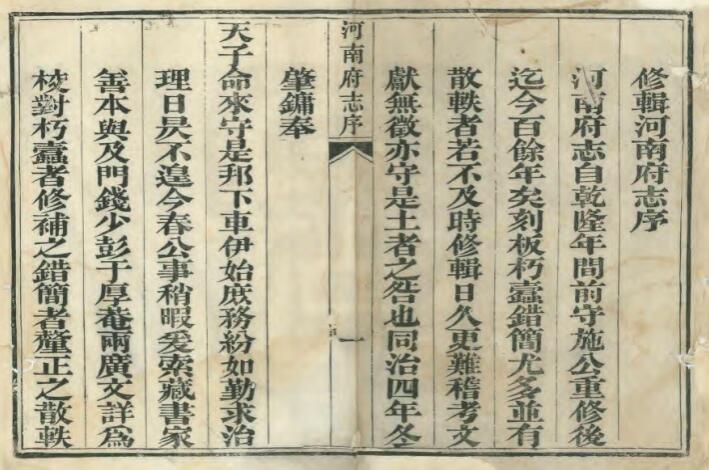 修輯河南府志序
河南府志自乾隆年間前守施公重修後
迄今百餘年矣刻板朽蠧錯簡尤多並有
散軼者若不及時修輯日久更難稽考文
獻無徵亦守是土者之咎也同治四年冬
肇鏞奉
河南府志序
一
天子命來守是邦下車伊始庶務紛如勤求治
理日昃不遑今春公事稍暇爰索藏書家
善本與及門錢少彭于厚菴兩廣文詳爲
校對朽蠧者修補之錯簡者釐正之散軼